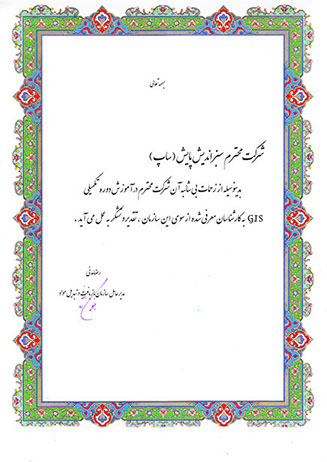 بسمه تعالی
شرکت محترم سبز اندیش پایش (ساپ)
بدینوسیله از زحمات بی شائبه آن شرکت محترم در آموزش دوره تکمیلی
GIS به کارشناسان معرفی شده از سوی این سازمان ، تقدیر و تشکر به عمل می آید .
رضا مدنی
مدیر عامل سازمان بازیافت و تبدیل مواد